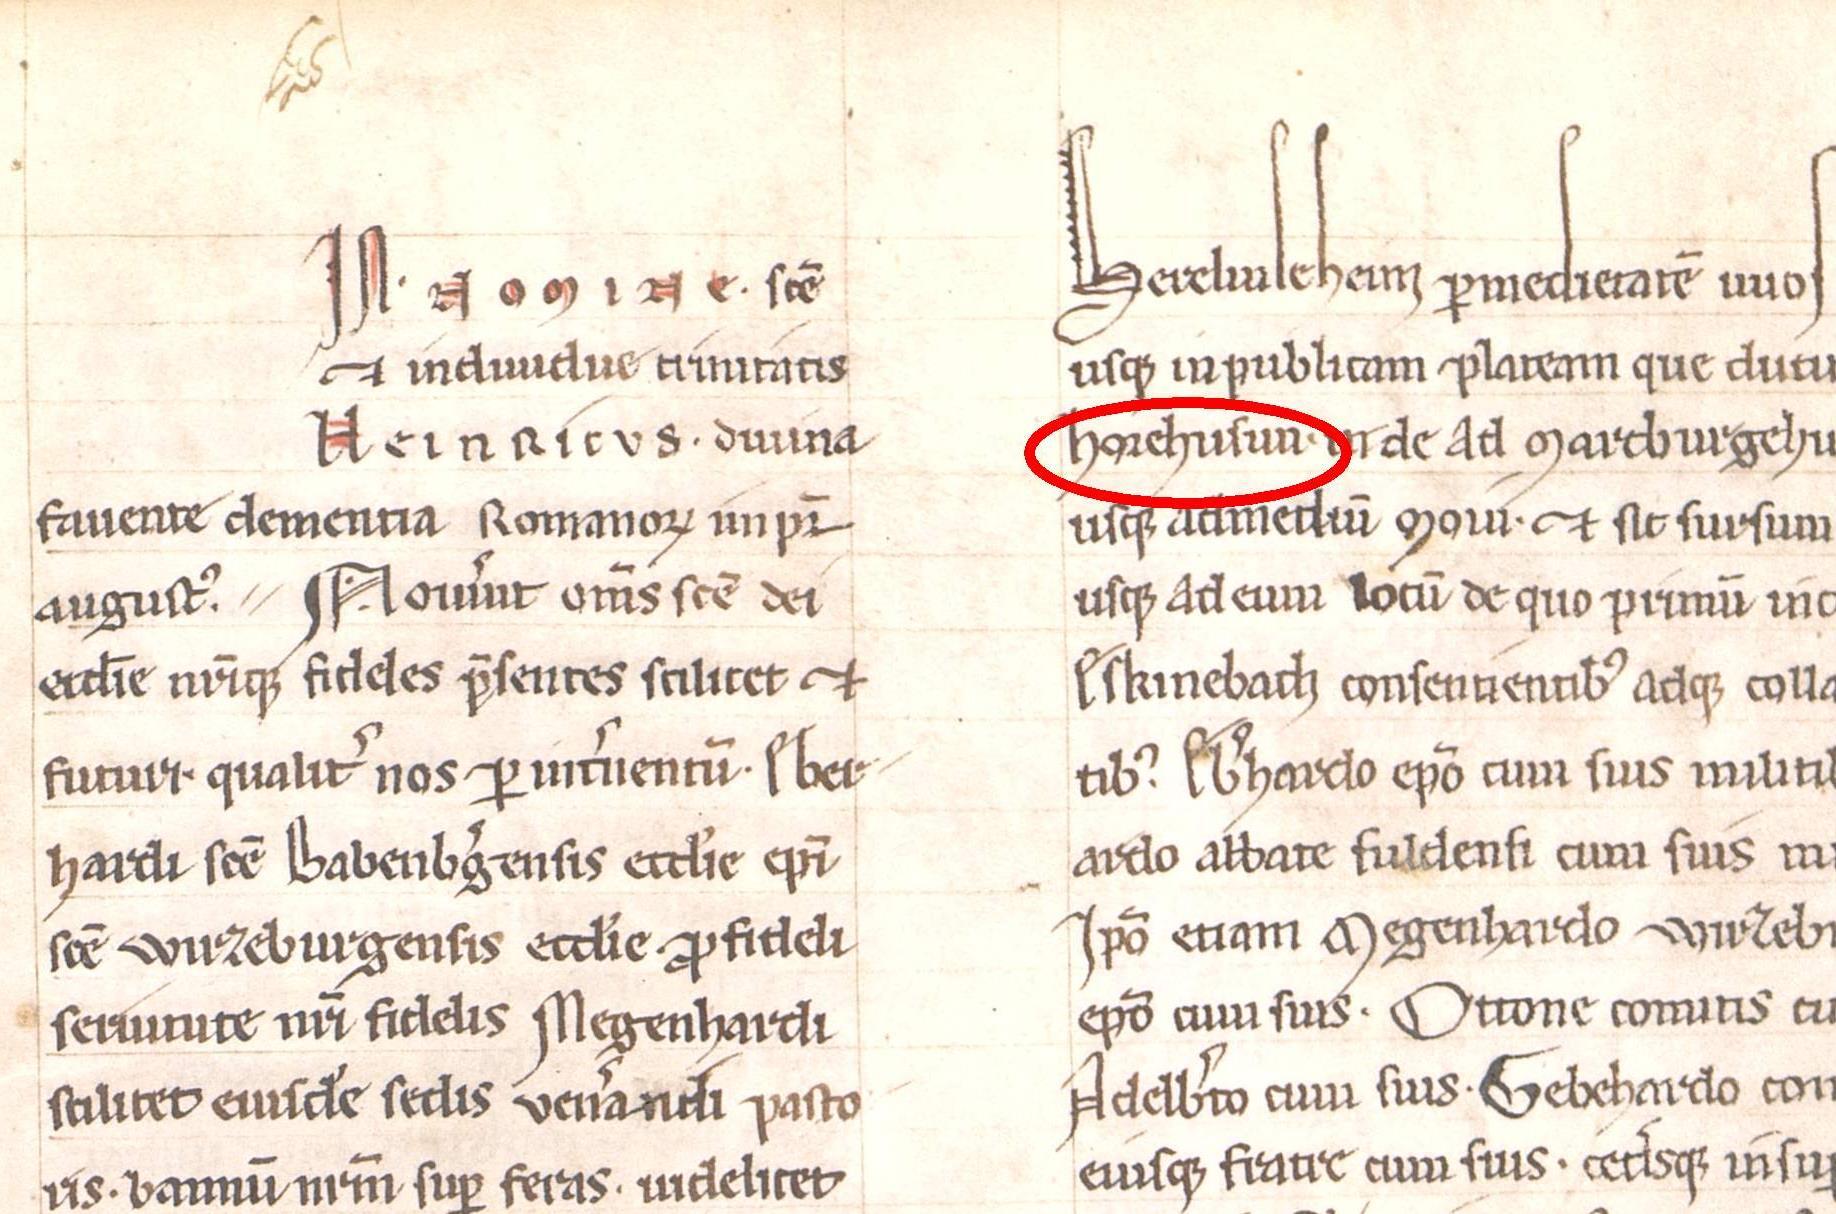 IN NOMINE scē
et indiuidue trinitatis
HEINRICVS. diuina
fauente clementia Romanoꝝ
august᾽.
Nouīt om̄s scē dei
eccl̄ie nr̄iq; fideles p̄sentes scilicet et
futuri. qualit̄ nos ꝑ int̓uentū. Eber
hardi scē Babenb̓gensis eccl̄ie ep̄i
scē Wirzeburgensis eccl̄ie ꝓ fideli
seruitute nr̄i fidelis Megenhardi
scilicet eiusdē sedis ven̓andi pasto
ris. bannū nr̄m sup̱ feras. uidelicet
ꝑ medietatē
usq; in publicam plateam que
horehusun. inde ad Marcburgehu
usq; ad mediū Moin. et sic sursum
usq; ad eum locū de quo primū
Eskinebach consentientib᾽ adq; colla
tib᾽. Eb̓hardo ep̄o cum suis militib
ardo abbate fuldensi cum suis
Ip̄o etiam Megenhardo
ep̄o cum suis. Ottone comitis
Adelb̓to cum suis. Gebehardo com
eiusq; fratre cum suis. cet̓isq;